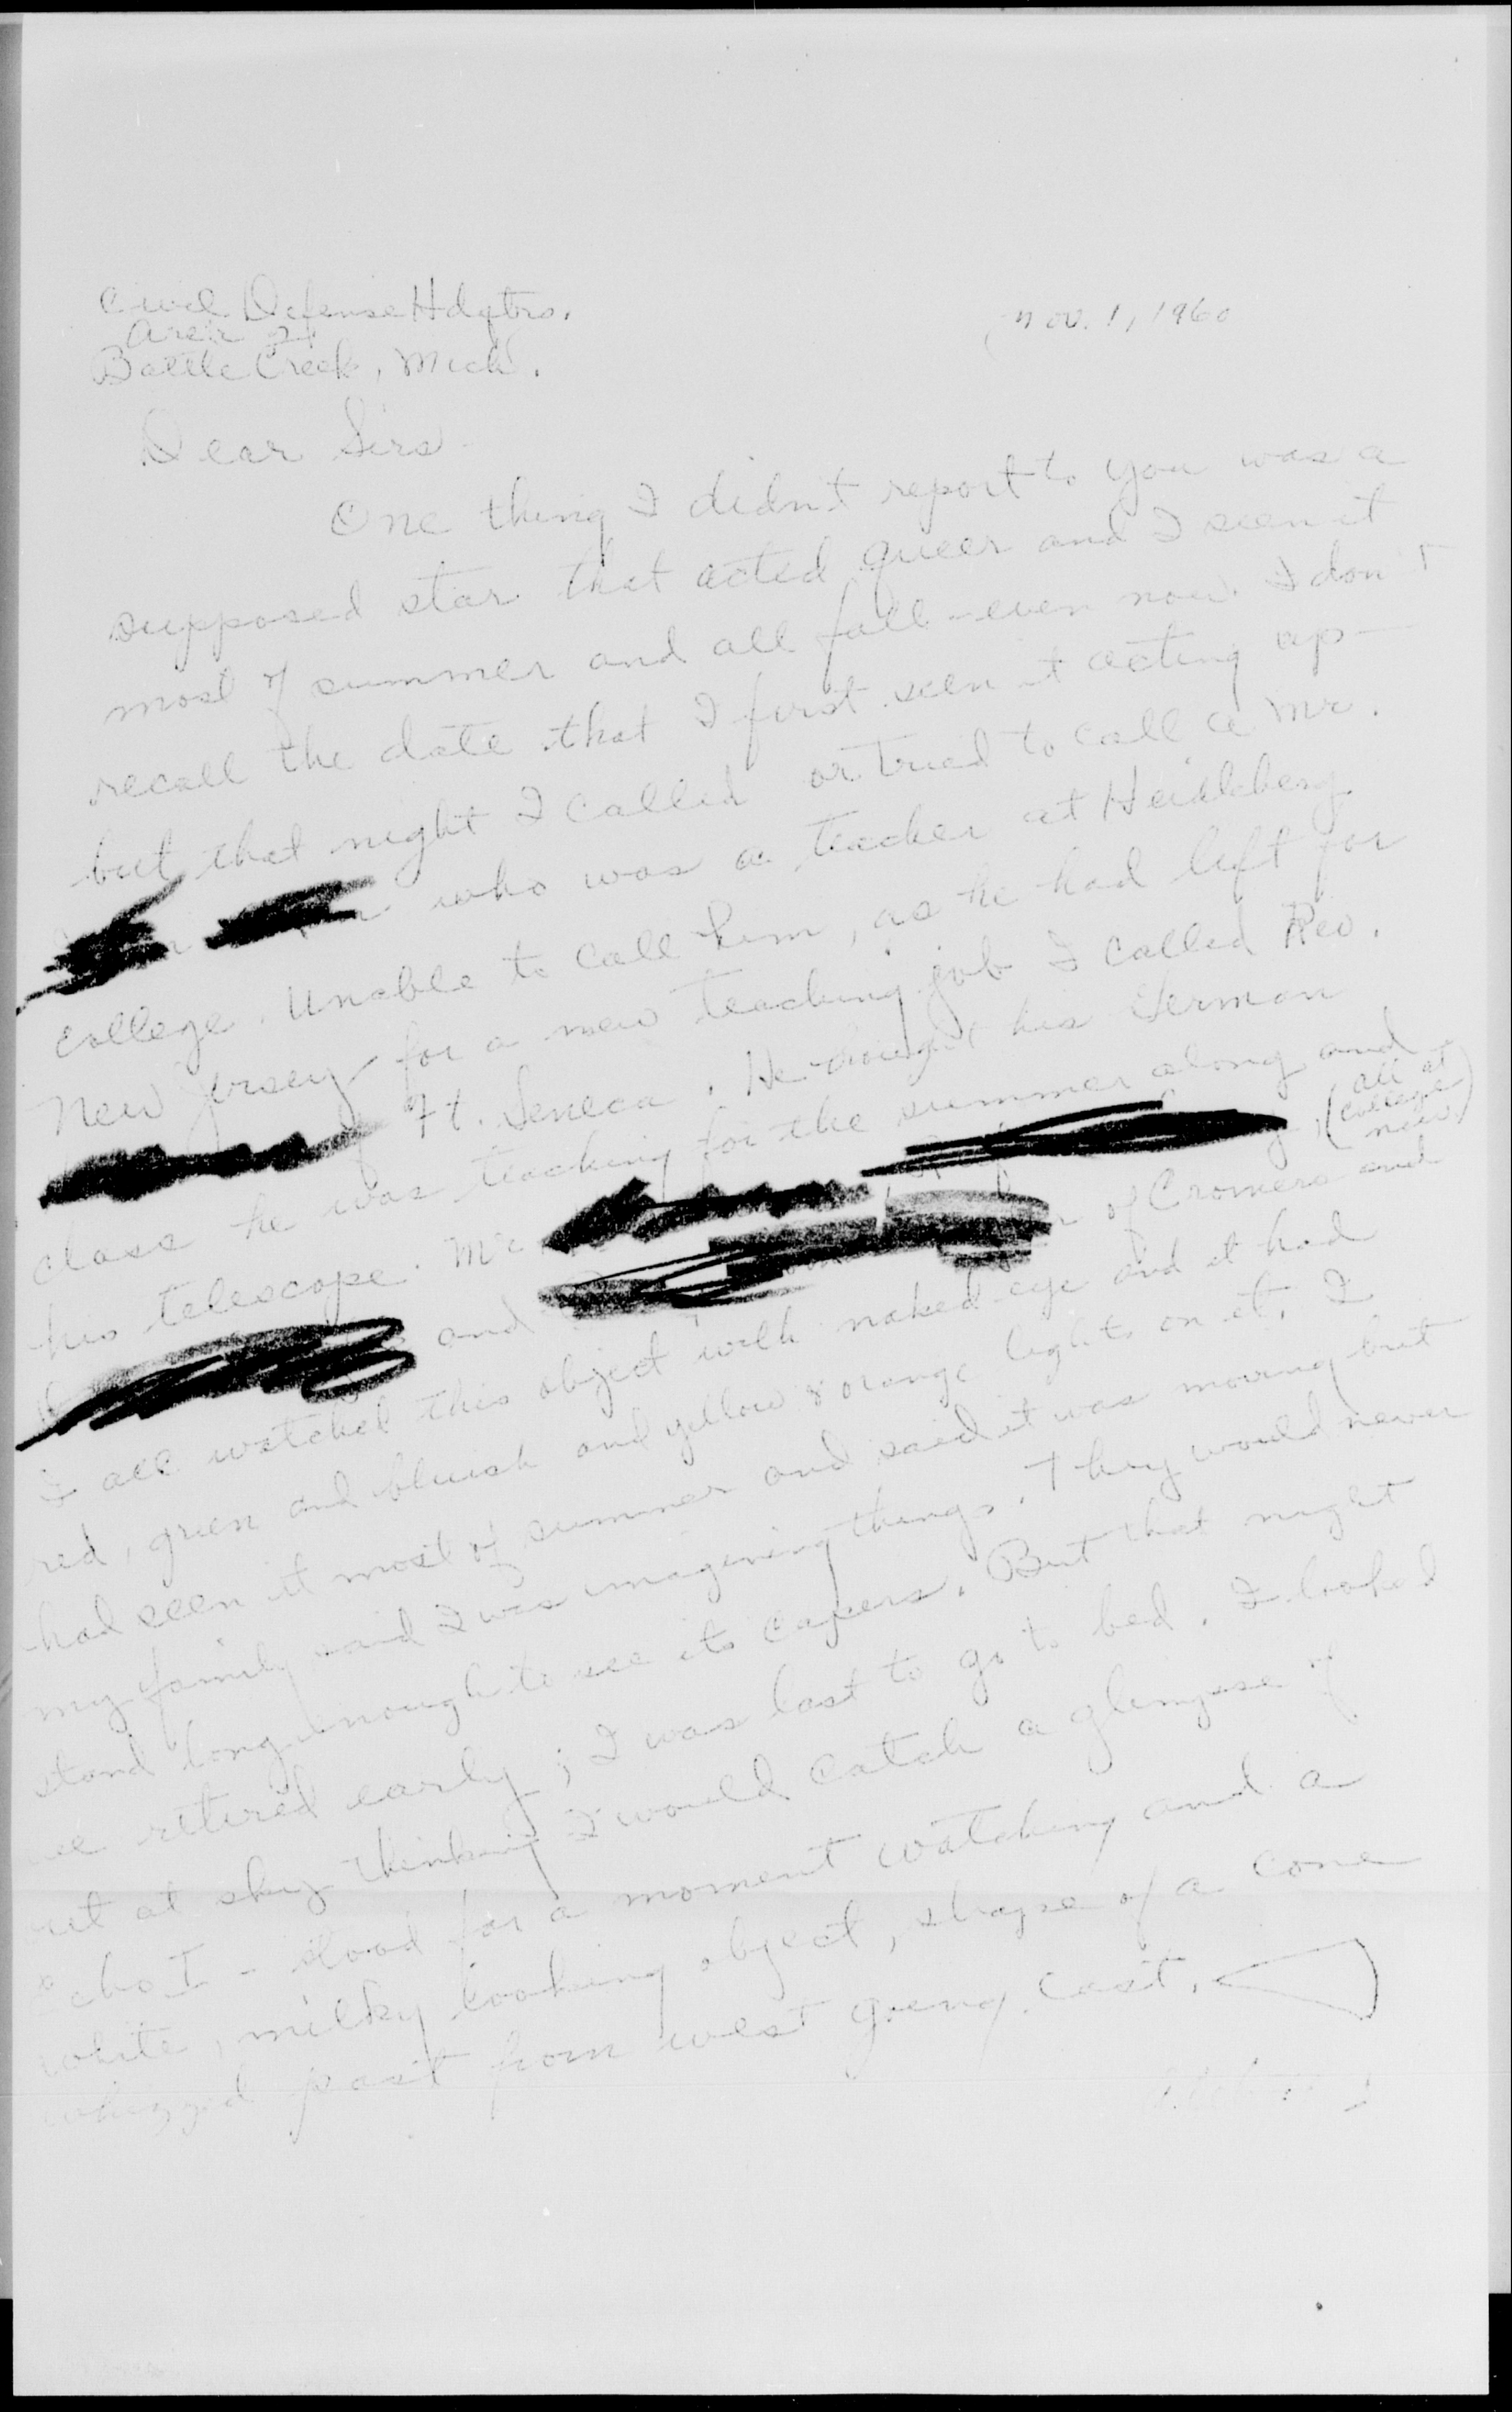 Civil Defense Hdqtrs.
Area 4
Battle Creek, Mich.
Nov. 1, 1960
Dear Sirs
One thing I didn't report to you was a
supposed star that acted queer and I seen it
most of summer and all fall - even now. I don't
recall the date that I first seen it acting up -
but that night I called or tried to call a Mr.
who was a teacher at Heidleberg
College. Unable to call him, as he had left for
New Jersey for a new teaching job I called Rev.
Ft. Seneca. He brought his German
class he was teaching for the summer along and
his telescope. Mr. (all at College now)
and of Cromers and
I all watched this object with naked eye and it had
red, green and bluish and yellow & orange lights on it. I
had seen it most of summer and said it was moving but
my family said I was imagining things. They would never
stand long enough to see its capers. But that night
we retired early; I was last to go to bed. I looked
out at sky thinking I would catch a glimpse of
Echo I - stood for a moment watching and a
white, milky looking object, shape of a cone
whizzed past from west going east.